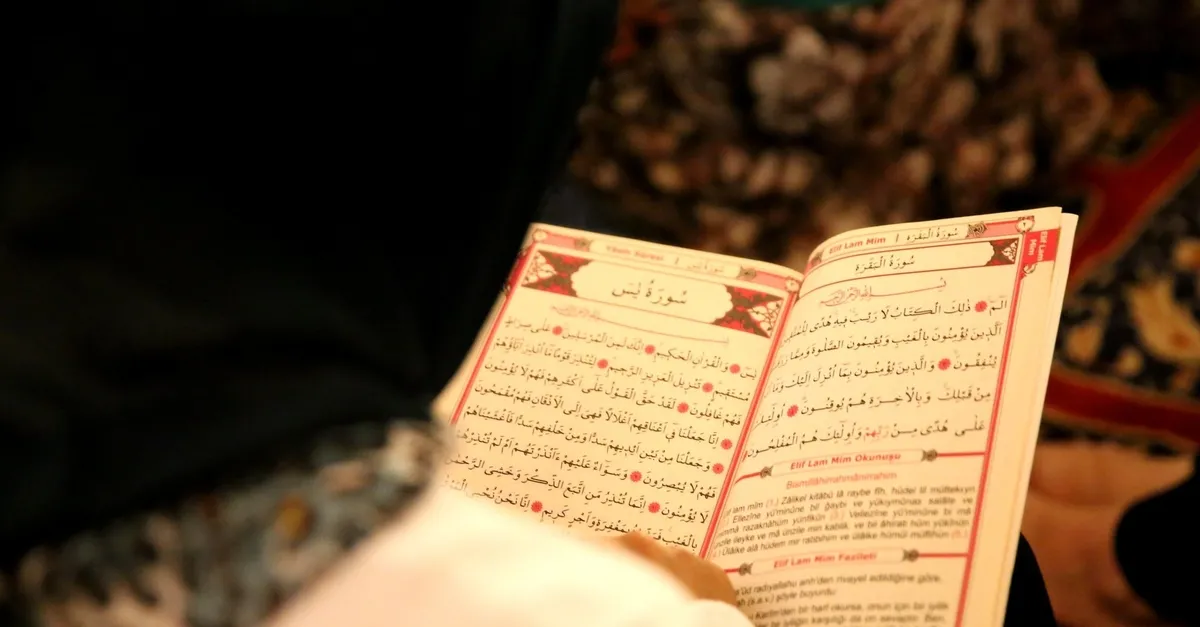 Elif Lam Mim | سُورَةُ الْبَقَرَةِ ٢
Elif Lam Mim
سُورَةُ الْبَقَرَةِ
الٓمٓ ذٰلِكَ الْكِتَابُ لَا رَيْبَ فِيهِ هُدًى
الَّذِينَ يُؤْمِنُونَ بِالْغَيْبِ وَيُقِيمُونَ الصَّلٰوةَ وَمِمَّا
يُنْفِقُونَ وَالَّذِينَ يُؤْمِنُونَ بِمَٓا اُنْزِلَ اِلَيْكَ وَمَٓا
مِنْ قَبْلِكَ وَبِالْاٰخِرَةِ هُمْ يُوقِنُونَ
عَلٰى هُدًى مِنْ رَبِّهِمْ وَاُولٰٓئِكَ هُمُ الْمُفْلِحُونَ
Elif Lam Mim Okunuşu
Bismillâhirrahmânirrahîm
lam mîm (1.) Zâlikel kitâbü lâ raybe fîh, hüdel lil müttekıyn
Ellezîne yü'minûne bil ğaybi ve yükıymûnas salâte ve
razaknâhüm yünfikûn (3.) Vellezîne yü'minûne bi mâ
ünzile ileyke ve mâ ünzile min kablik, ve bil âhirati hüm yûkinûn
Ülâike alâ hüdem mir rabbihim ve ülâike hümül müflihûn (5.)
Elif Lam Mim Fazileti
radıyallahu anh'den rivayet edildiğine göre,
(s.a.v.) şöyle buyurdu:
bir harf okursa, onun için bir iyilik
Yâsîn Sûresi | سُورَةُ يٰسٓ
سُورَةُ يٰسٓ
يٰسٓ وَالْقُرْاٰنِ الْحَكِيمِ اِنَّكَ لَمِنَ الْمُرْسَلِينَ عَلٰى صِرَاطٍ
مُسْتَقِيمٍ تَنْزِيلَ الْعَزِيزِ الرَّحِيمِ لِتُنْذِرَ قَوْمًا مَٓا اُنْذِرَ اٰبَٓاؤُهُمْ
فَهُمْ غَافِلُونَ لَقَدْ حَقَّ الْقَوْلُ عَلٰٓى اَكْثَرِهِمْ فَهُمْ لَا يُؤْمِنُونَ
اِنَّا جَعَلْنَا فِٓي اَعْنَاقِهِمْ اَغْلَالًا فَهِيَ اِلَى الْاَذْقَانِ فَهُمْ مُقْمَحُونَ
وَجَعَلْنَا مِنْ بَيْنِ اَيْدِيهِمْ سَدًّا وَمِنْ خَلْفِهِمْ سَدًّا فَاَغْشَيْنَاهُمْ
فَهُمْ لَا يُبْصِرُونَ وَسَوَٓاءٌ عَلَيْهِمْ ءَاَنْذَرْتَهُمْ اَمْ لَمْ تُنْذِرْهُمْ
لَا يُؤْمِنُونَ اِنَّمَا تُنْذِرُ مَنِ اتَّبَعَ الذِّكْرَ وَخَشِيَ الرَّحْمٰنَ
بِالْغَيْبِ فَبَشِّرْهُ بِمَغْفِرَةٍ وَاَجْرٍ كَرِيمٍ اِنَّا نَحْنُ نُحْيِ